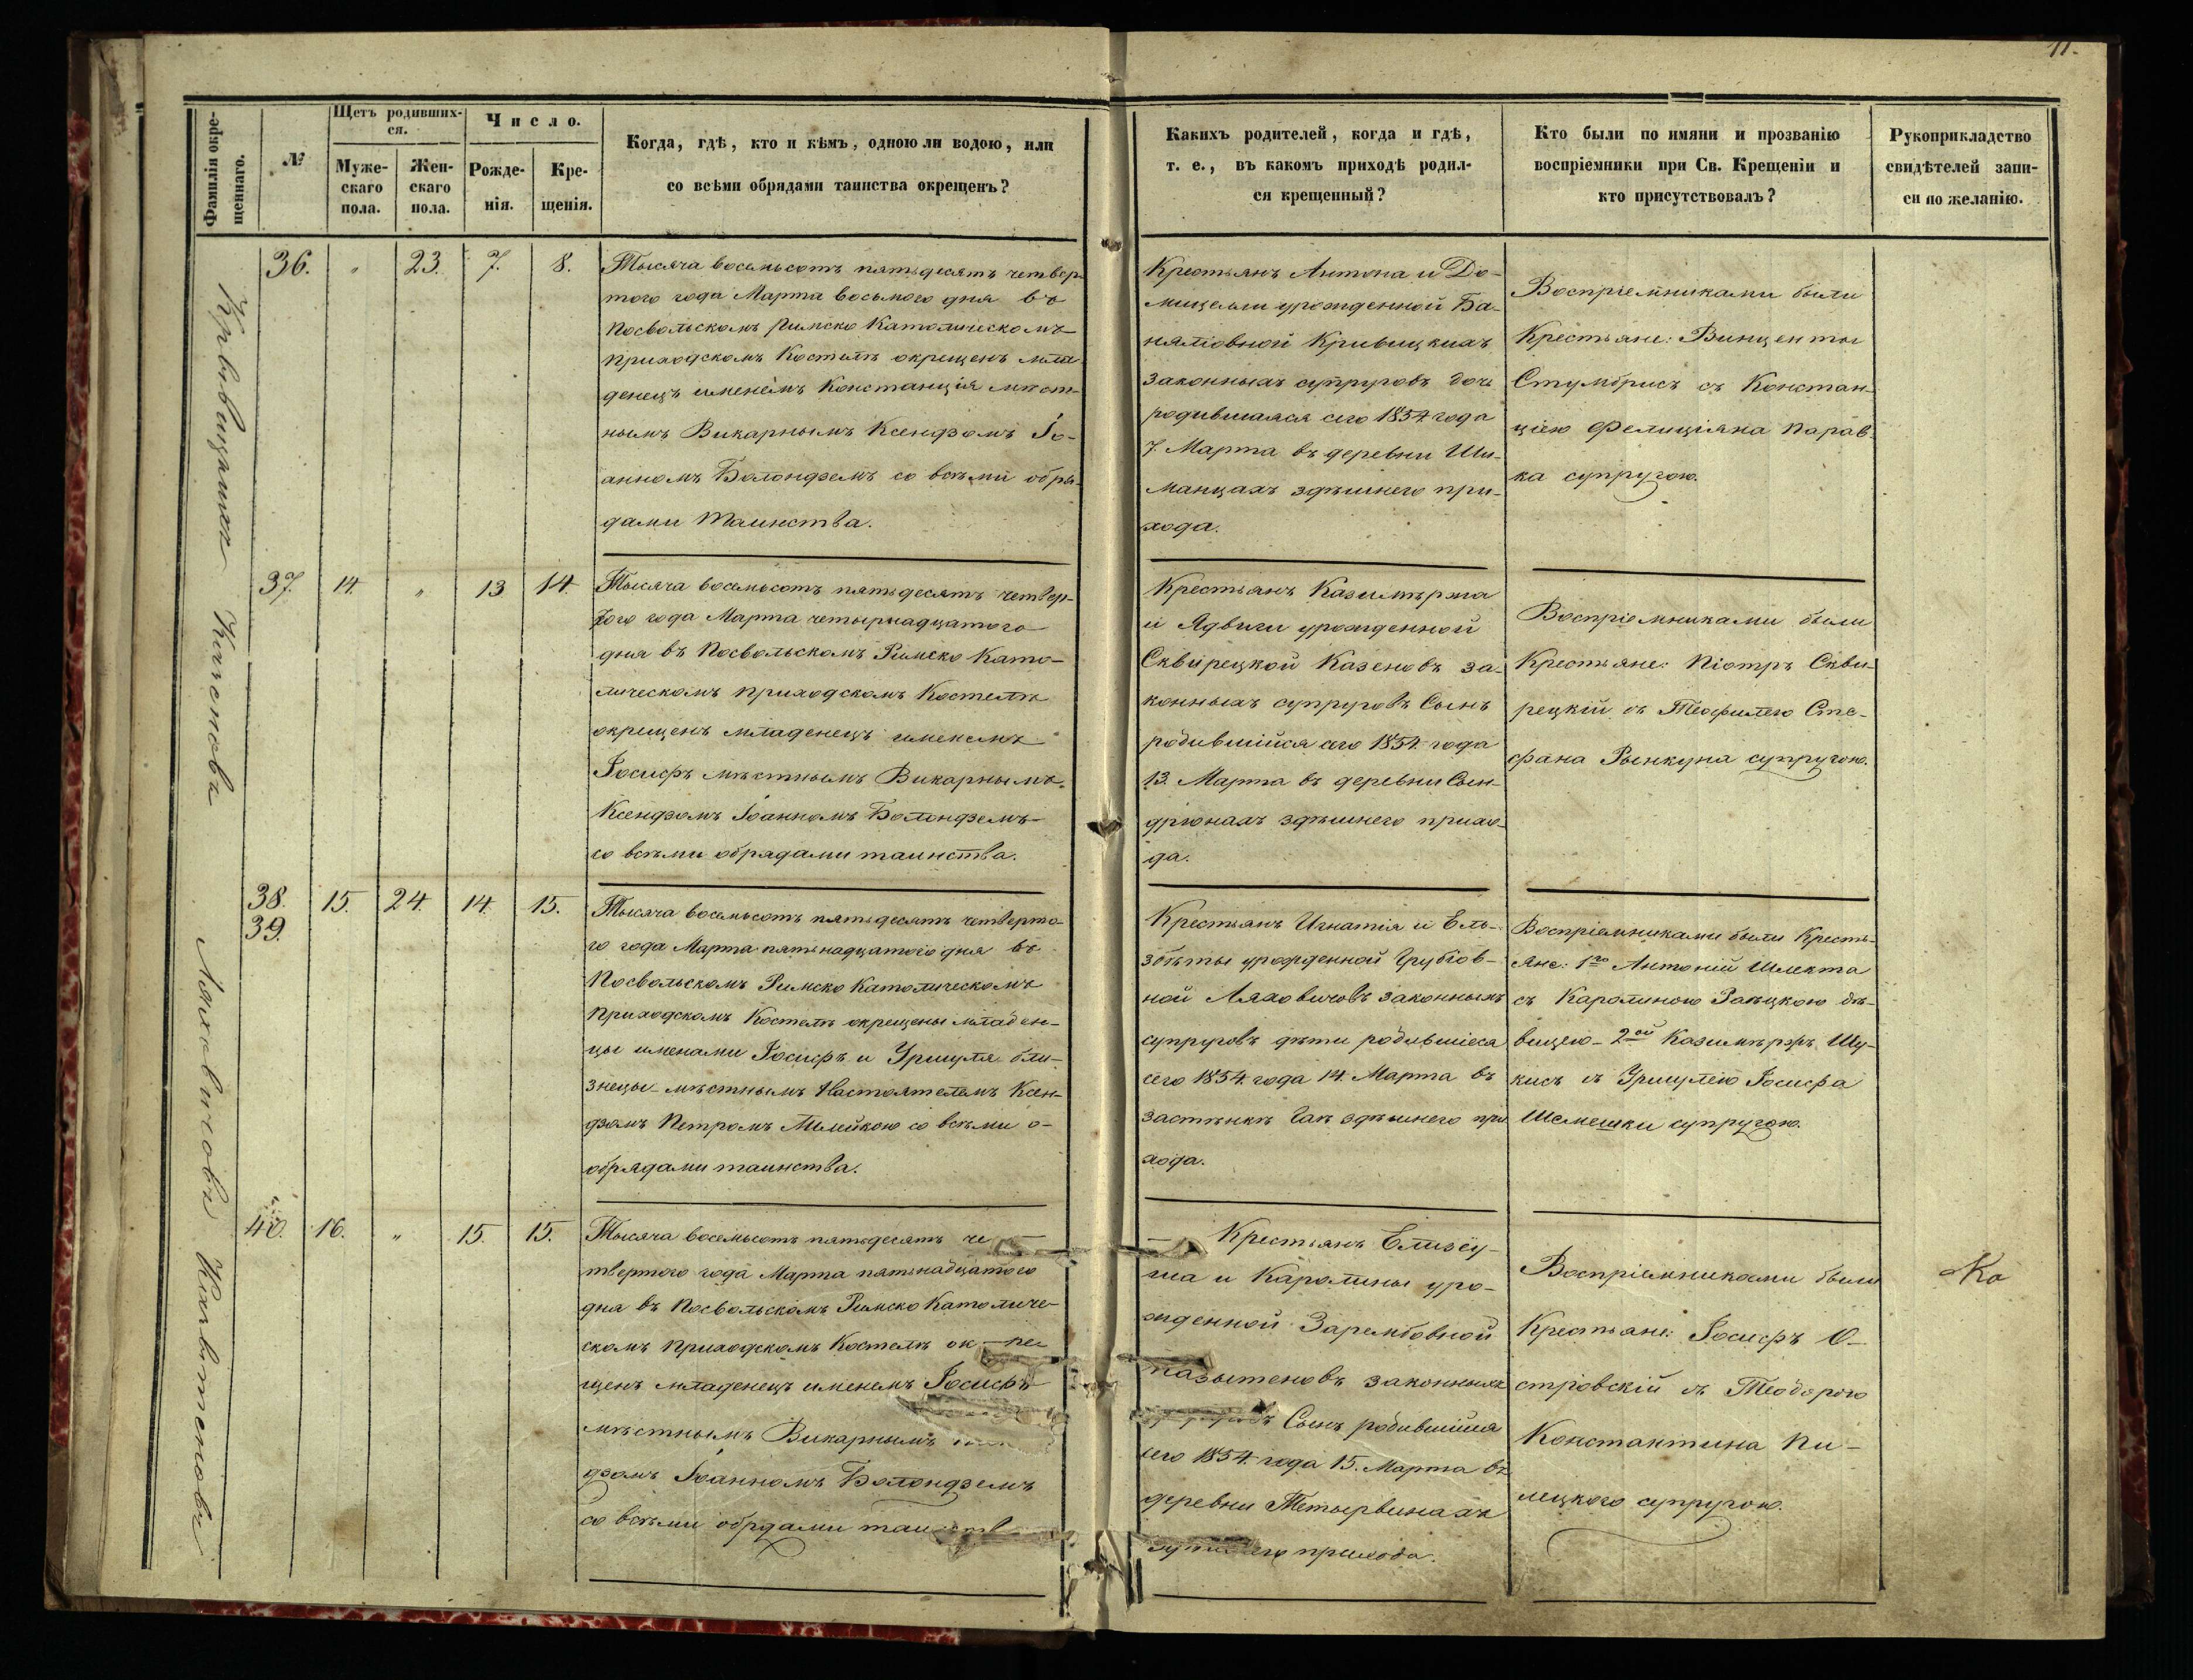 11.
Фамилія окре-
щеннаго.
№
Щетъ родивших-
ся.
Муже-
скаго
пола.
Жен-
скаго
пола.
Число.
Рожде-
нія.
Кре-
щенія.
Когда, гдѣ, кто и кѣмъ, одною ли водою, или
со всѣми обрядами таинства окрещенъ?
Какихъ родителей, когда и гдѣ,
т. е., въ какомъ приходѣ родил-
ся крещенный?
Кто были по имяни и прозванію
воспріемники при Св. Крещеніи и
кто присутствовалъ?
Рукоприкладство
свидѣтелей запи-
си по желанію.
36. " 23. 7. 8.
Тысяча восемьсотъ пятьдесятъ четвер-
того года Марта восьмого дня въ
Посвольскомъ Римско Католическомъ
приходскомъ Костелѣ окрещенъ мла-
денецъ именемъ Констанція мѣст-
нымъ Викарнымъ Ксендзомъ Іо-
анномъ Болондземъ со всѣми обря-
дами таинства.
Крестьянъ Антона и До-
мицели урожденной Ба-
Кривицкихъ
законныхъ супруговъ дочь
родившаяся сего 1854 года
7. Марта въ деревни Ши-
манцахъ здѣшнего при-
хода.
Воспріемниками были
Крестьяне: Винценты
Стумбрисъ съ Констан-
ціею Фелиціяна Парав-
ка супругою.
37. 14. " 13 14.
Казеновъ
Тысяча восемьсотъ пятьдесятъ четвер-
того года Марта четырнадцатого
дня въ Посвольскомъ Римско Като-
лическомъ приходскомъ Костелѣ
окрещенъ младенецъ именемъ
Іосифъ мѣстнымъ Викарнымъ
Ксендзомъ Іоанномъ Болондземъ
со всѣми обрядами таинства.
Крестьянъ Казимѣржа
и Ядвиги урожденной
Сквирецкой Казеновъ за-
конныхъ супруговъ Сынъ
родившійся сего 1854 года
13. Марта въ деревни Сын-
дріонахъ здѣшнего прихо-
да.
Воспріемниками были
Крестьяне: Піотръ Скви-
рецкій съ Теофилею Сте-
фана Рынкуна супругою.
38. 15. 24. 14. 15.
39.
Ляховичовъ
Тысяча восемьсотъ пятьдесятъ четверто-
го года Марта пятьнадцатого дня въ
Посвольскомъ Римско Католическомъ
Приходскомъ Костелѣ окрещены младен-
цы именами Іосифъ и Уршуля бли-
знецы мѣстнымъ Настоятелемъ Ксен-
дзомъ Петромъ со всѣми о-
обрядами таинства.
Крестьянъ Игнатія и Ель-
збѣты урожденной
ной Ляховичовъ законныхъ
супруговъ дѣти родившіеся
сего 1854 года 14. Марта въ
застѣнкѣ здѣшнего при
хода.
Воспріемниками были Кресть-
яне: 1го Антоній Шлекта
съ Каролиною Раецкою дѣ-
вицею - 2ой Казимѣржъ Шу-
кисъ съ Уршулею Іосифа
Шемешки супругою.
40. 16. " 15. 15.
Тысяча восемьсотъ пятьдесятъ че
твертого года Марта пятьнадцатого
дня въ Посвольскомъ Римско Католиче-
скомъ приходскомъ Костелѣ ок-ре-
щенъ младенецъ именемъ Іосифъ
мѣстнымъ Викарнымъ
дзомъ Іоанномъ Болондземъ
со всѣми обрядами
Крестьянъ Елизеу-
ша и Каролины уро-
жденной Зарембовной
законныхъ
Сынъ родившійся
сего 1854 года 15. Марта въ
деревни Тетырвинахъ
прихода.
Воспріемниками были
Крестьяне: Іосифъ О-
стровскій съ Теодорою
Константина Пи-
лецкого супругою.
Ко